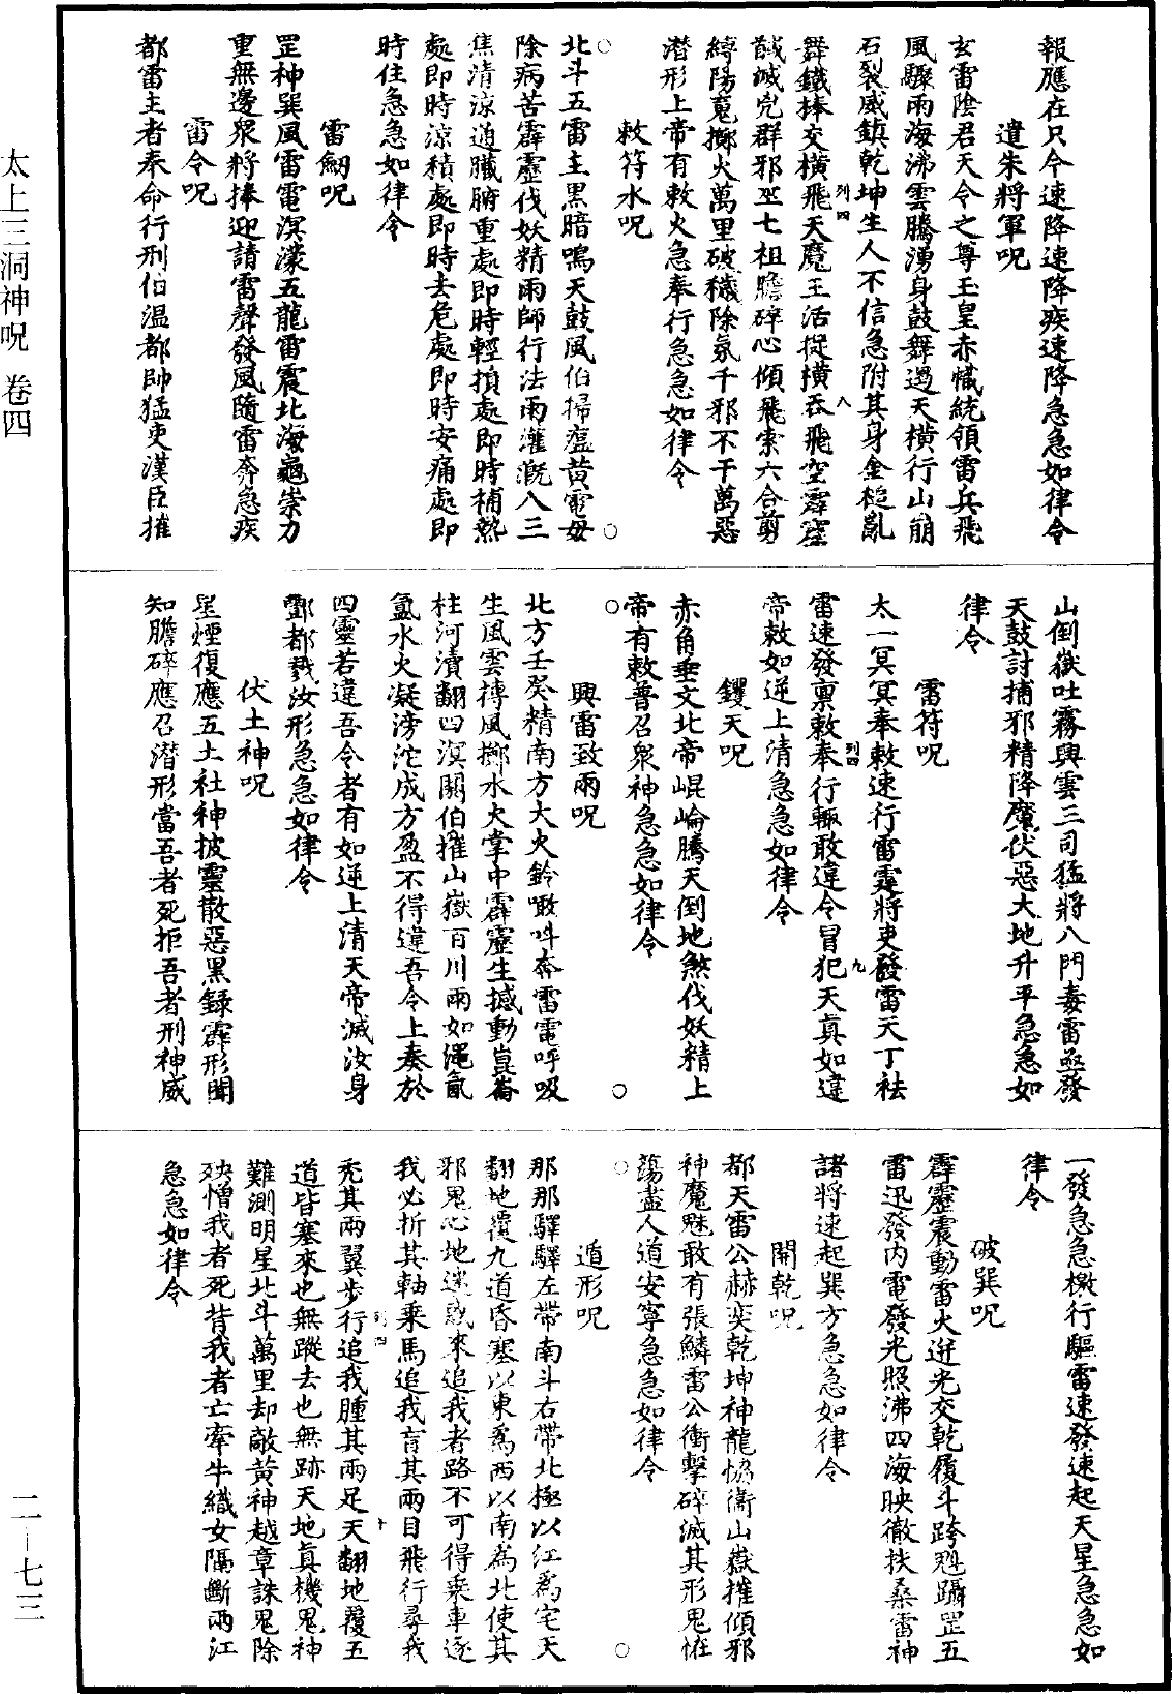 報應在只今速降速降疾速降急急如律令
遣朱將軍呪
玄雷陰君天令之尊玉皇赤幟統領雷兵飛
風驟雨海沸雲騰湧身鼓舞遏天橫行山崩
石裂威鎮乾坤生人不信急附其身金槌亂
舞鐵捧交橫飛天魔王活捉橫吞飛空霹靂
馘滅兇群邪巫七祖膽碎心傾飛索六合剪
縛陽寃擲火萬里破穢除氛千邪不干萬惡
潜形上帝有敕火急奉行急急如律令
敕符水呪
北斗五雷主黑暗鳴天鼓風伯掃瘟黃電毋
除病苦霹靂伐妖精雨師行法雨灌溉入三
焦清涼通臟腑重處即時輕損處即時補熱
處即時涼積處即時去危處即時安痛處即
時住急急如律令
雷劒呪
罡神巽風雷電溟濛五龍雷震北海龜崇力
重無邊衆將捧迎請雷聲發風隨雷奔急疾
雷令呪
都雷主者奉命行刑伯温都帥猛吏漢臣摧
山倒嶽吐霧興雲三司猛將八門毒雷亟發
天鼓討捕邪精降魔伏惡大地升平急急如
律令
雷符呪
太一冥冥奉敕速行雷霆將吏發雷天丁祛
雷速發禀敕奉行輙敢違令冒犯天真如違
帝敕如逆上清急急如律令
鑊天呪
赤角垂文北帝崐崘騰天倒地煞伐妖精上
帝有敕普召衆神急急如律令
興雷致雨呪
北方壬癸精南方大火鈴噉吽奔雷電呼吸
生風雲摶風擲水火掌中霹靂生撼動崑崙
柱河瀆翻四溟關伯摧山嶽百川雨如繩氤
氳水火凝滂沱成方盈不得違吾令上奏於
四靈若違吾令者有如逆上清天帝滅汝身
酆都戮汝形急急如律令
伏土神呪
星煙復應五土社神披靈散惡黑録霹形聞
知膽碎應召潜形當吾者死拒吾者刑神威
一發急急檄行驅雷速發速起天星急急如
律令
破巽呪
霹靂震動雷火迸光交乾履斗跨魁躡罡五
雷迅發内電發光照沸四海映徹扶桑雷神
諸將速起巽方急急如律令
開乾呪
都天雷公赫奕乾坤神龍恊衛山嶽摧傾邪
神魔魅敢有張鱗雷公衝擊碎滅其形鬼恠
蕩盡人道安寧急急如律令
遁形呪
那那驛驛左帶南斗右帶北極以江爲宅天
翻地覆九道昏塞以東爲西以南爲北使其
邪鬼心地迷惑來追我者路不可得乘車逐
我必折其軸乘馬追我盲其兩目飛行尋我
禿其兩翼步行追我腫其兩足天翻地覆五
道皆塞來也無蹤去也無跡天地真機鬼神
難測明星北斗萬里却敵黃神越章誅鬼除
殃憎我者死背我者亡牽牛織女隔斷兩江
急急如律令
太上三洞神呪 卷四
二—七三